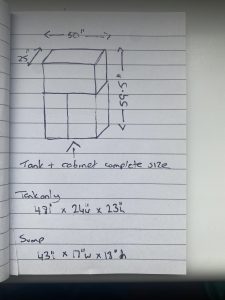 50"
25"
59.5"
Tank + cabinet complete size
Tank only
47l" x 24w" x 23h"
Sump
43"l x 17"w x 18"h